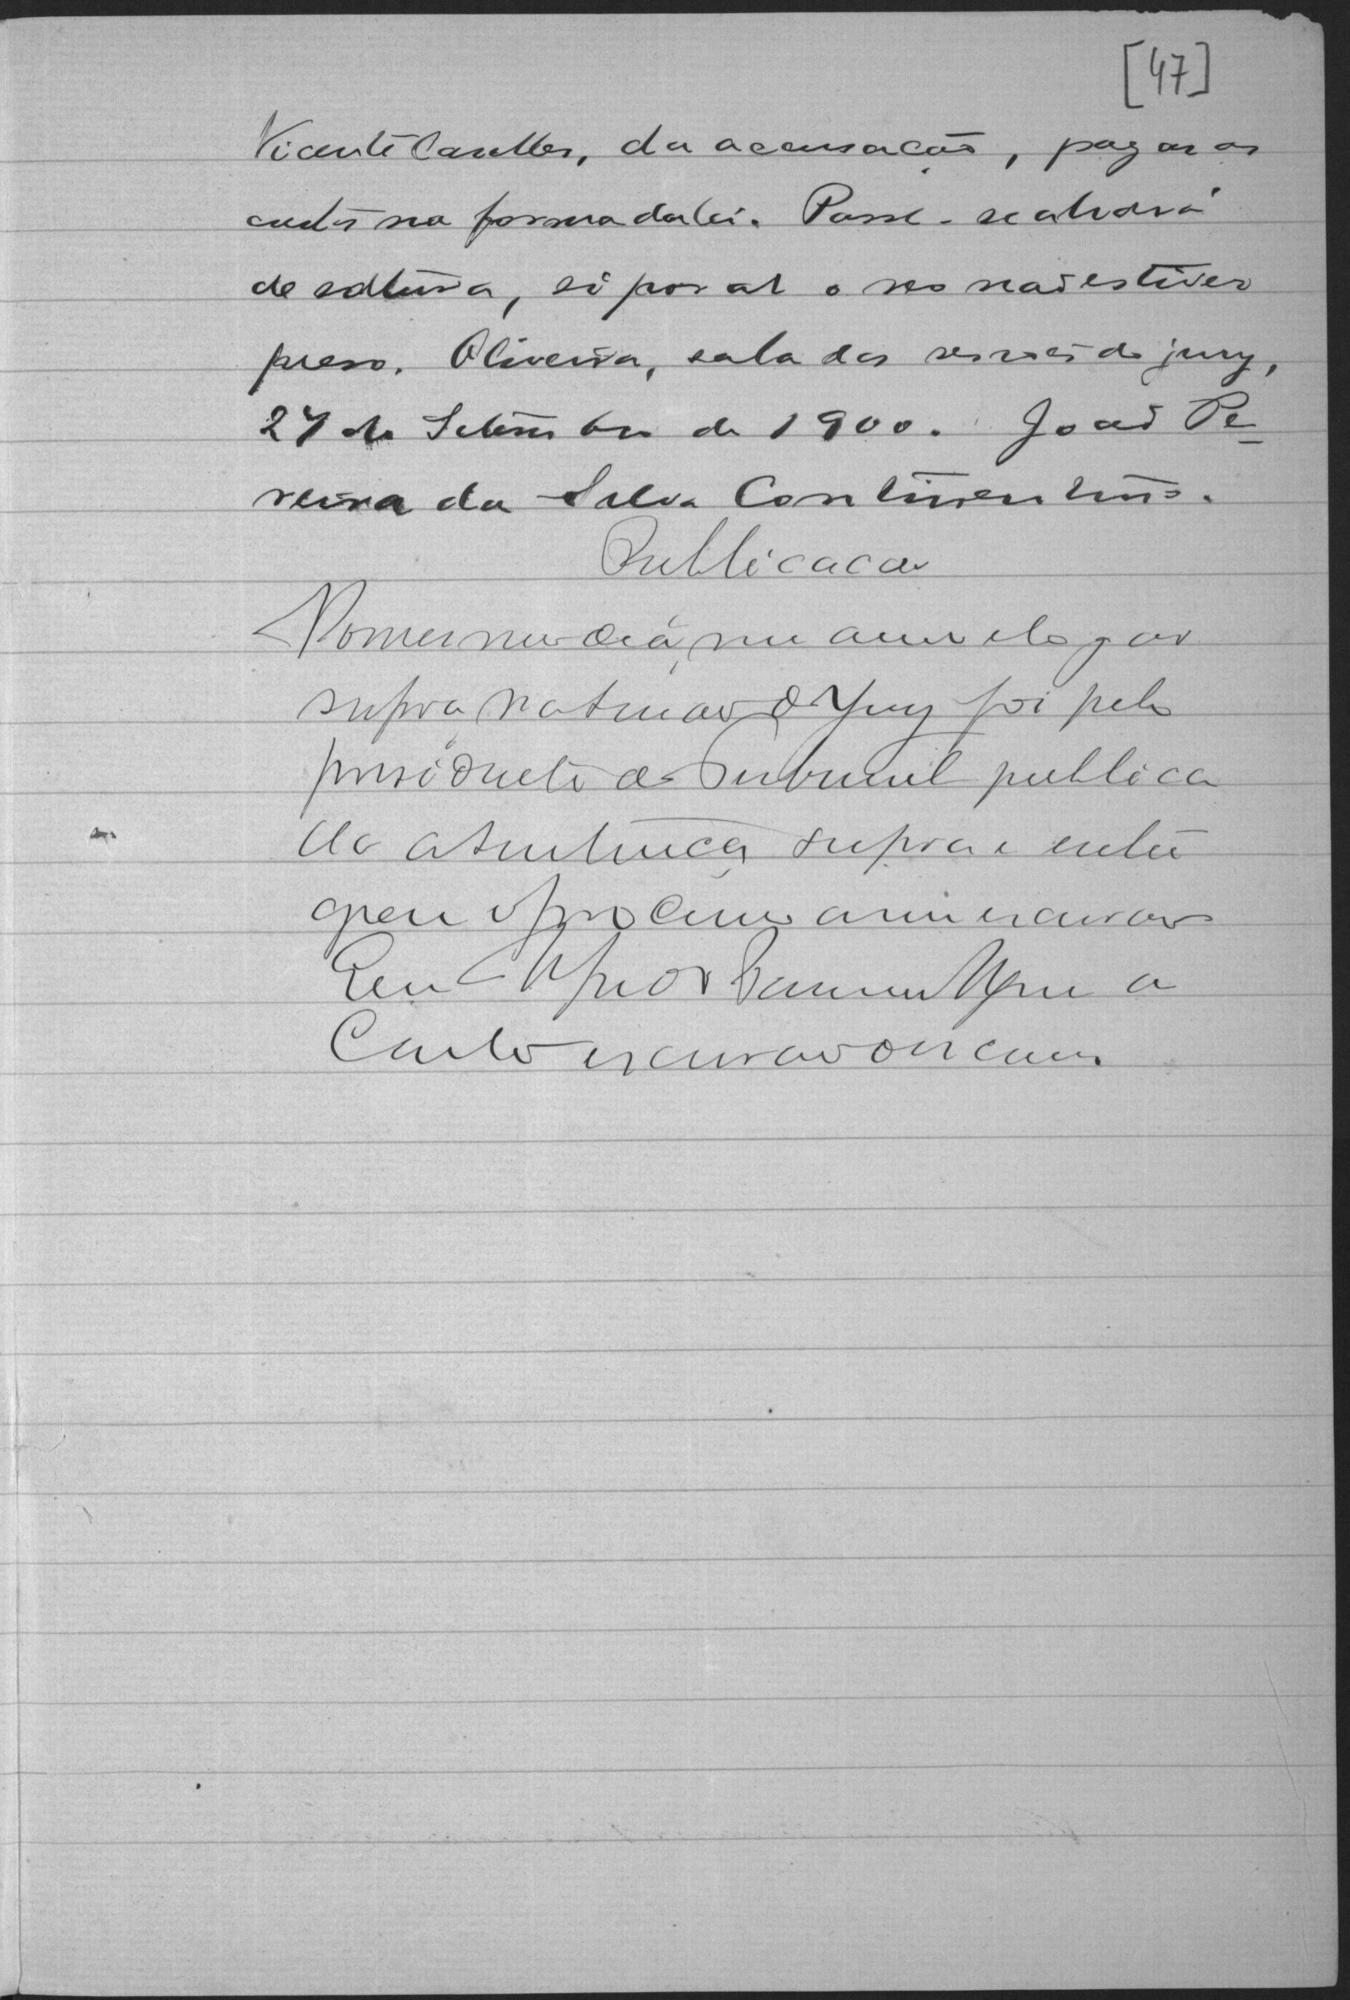 [47]
Vicente Caselles, da accusação, pagas as
custas na forma da lei. Passe-se alvará
de soltura, si por al o reo não estiver
preso. Oliveira, sala das sessões do jury,
27 de Setembro de 1900. João Pe-
reira da Silva Continentino.
Publicação
No mesmo dia, mez anno e logar
supra na sessão do Jury foi pelo
presidente do Tribunal publica
da a sentença supra e entre
gou o processo a mim escrivão
Eu
Couto escrivão o escrevi.